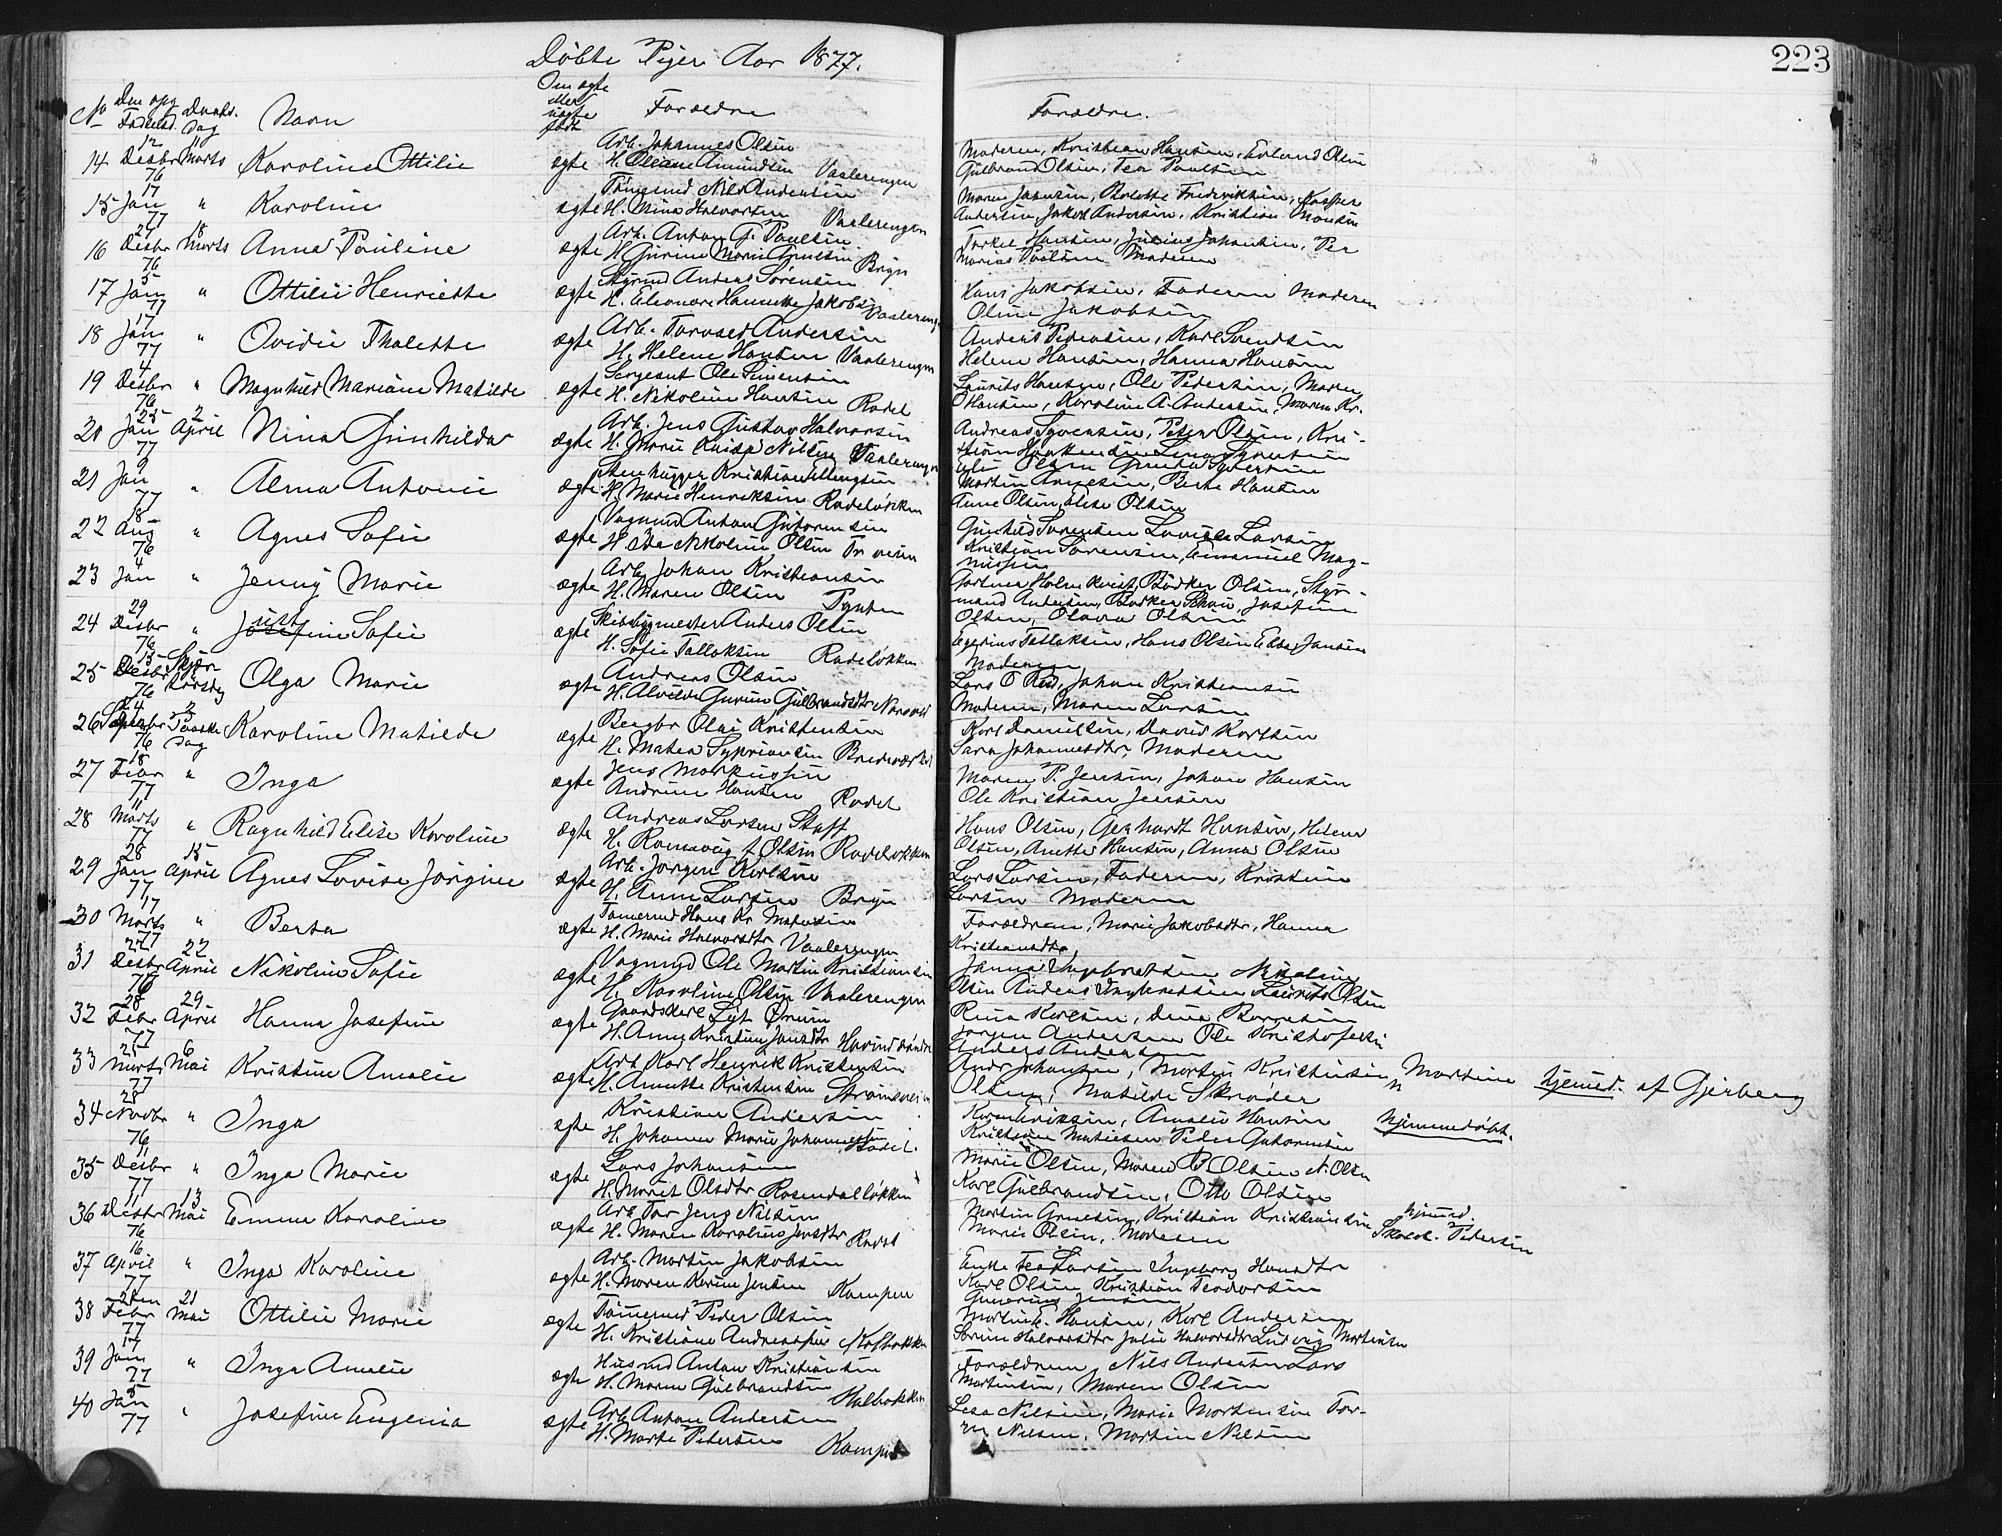 Døbte Piger Aar 1877.
223
No Den opg Fødselsd. Daabsd. Dag Navn Om ægte eller uægte født Forældre
Forældre.
14 12 Desbr 76 11 Marts Karoline Ottilie ægte Arb. Johannes Olsen
H. Oleane Amundsen Vaalerengen
Moderen, Kristian Hansen, Erland Olsen
Gulbrand Olsen, Tea Paulsen
15 17 Jan 77 " Karoline ægte Tømmermd Nils Andersen
H. Mina Halvorsen Vaalerengen
Maren Johnsen, Frederiksen, Kasper
Andersen, Jakob Andersen, Kristian Monsen
16 27 Desbr 76 18 Marts Anna Pauline ægte Arb. Anton G. Paulsen
H. Gurine Marie Arnesen Bryn
Torkel Hansen, Julius Johansen, Per
Marius Paulsen Moderen
17 5 Jan 77 " Ottilie Henriette ægte Styrmd Anders Sørensen
H. Eleonore Hannette Jakobs Vaalereng
Hans Jakobsen, Faderen Moderen
Oline Jakobsen
18 17 Jan 77 " Ovidie Thalette ægte Arb. Torvald Andersen
H. Helene Hansen Vaalerengen
Anders Pedersen, Karl Svendsen
Helene Hansen, Hanna Hansen
19 4 Desbr 76 " Magnhild Mariane Matilde ægte Sergeant Ole Simensen
H. Nikoline Hansen Rodel
Laurits Hansen, Ole Pedersen, Maren
Hansen, Karoline A. Andersen, Maren Kr.
20 25 Jan 77 2 April Nina Gunhilda ægte Arb. Jens Gustav Halvorsen
H. Marie Nilsen Vaalerengen
Andreas Syvertsen, Peter Olsen, Kri-
stian Haakensen Lina Syvertsen
21 9 Jan 77 " Alma Antonie ægte Stenhugger Kristian Ellingsen
H. Marie Henriksen Rodeløkken
Olsen Syversen
Martin Arnesen, Berte Hansen
Anne Olsen, Elise Olsen
22 18 Aug 76 " Agnes Sofie ægte Vognmd Anton Gutormsen
H. Ida Nikoline Olsen
Gunhild Sørensen Lovise Larsen
Kristian Sørensen, Emanuel Mag-
nussen
23 4 Jan " Jenny Marie ægte Arb Johan Kristiansen
H. Maren Olsen Pynten
Gartner Holmkvist, Bødker Olsen, Styr-
mand Andersen, Bødker Schou, Josefine
Olsen, Olava Olsen
24 29 Desbr 76 " Josefine Sofie ægte Skibsbygmester Anders Olsen
H. Sofie Tallaksen Rodeløkken
Tallaksen, Hans Olsen Ebba Jansen
Moderen
25 15 Desbr 76 Skjær torsdag Olga Marie ægte Andreas Olsen
H. Alvilde Gurine Gulbrandsdtr
Lars O Rud, Johan Kristiansen
Moderen, Maren Larsen
26 24 Septbr 76 2 Paaske Dag Karoline Matilde ægte Bergbr Olai Kristensen
H. Matea Syprionsen
Karl Danielsen, David Karlsen
Sara Johannesdtr, Moderen
27 18 Febr 77 " Inga ægte Jens Markussen
Andrine Hansen Rodel
Maren P. Jensen, Johan Hansen
Ole Kristian Jensen
28 11 Marts 77 " Ragnhild Elise Karoline ægte Andreas Larsen Staff
H. f Olsen Rodeløkken
Hans Olsen, Gerhardt Hansen, Helene
Olsen, Anette Hansen, Anna Olsen
29 28 Jan 77 15 April Agnes Lovise Jørgine ægte Arb. Jørgen Karlsen
H. Anne Larsen Bryn
Lars Larsen, Faderen, Kristine
Larsen Moderen
30 17 Marts 77 " Berta ægte Tømermd Hans Kr Matesen
H. Marie Halvorsdtr Vaalerengen
Forældrene, Marie Jakobsdtr, Hanna
Kristiansdtr
31 27 Desbr 76 22 April Nikoline Sofie ægte Vognmd Ole Martin Kristiansen
H. Karoline Olsen Vaalerengen
Janna Ingbretsen Nikoline
Olsen Anders Ingbretsen Laurits Olsen
32 28 Febr 77 29 April Hanna Josefine ægte Gaardskarl Syt Ørnum
H. Anne Kristine Jansdtr
Rina Karlsen, Dina Borresen
Jørgen Andersen Ole Kristofersen
Anders Andersen
33 25 Marts 77 6 Mai Kristine Amalie ægte Arb Karl Henrik Kristensen
H. Annette Kristensen Strømsveien
Andr Johansen, Morten Kristensen, Martine
Olsen, Matilde Skrøder
hjemmed. af Gjerberg
34 28 Novbr 76 " Inga ægte Kristian Andersen
H. Johanne Marie Johannesen Rodel.
Karen Eriksen, Amalie Hansen
Kristian Matiesen Peder Gutormsen
hjemmedøbt.
35 11 Desbr 77 " Inga Marie ægte Lars Johansen
H. Marit Olsdtr Rosendalløkken
Marie Olsen, Maren B. Olsen N. Olsen
Karl Gulbrandsen, Otto Olsen
36 11 Desbr 76 13 Mai Emma Karoline ægte Arb Tor Jens Nilsen
H. Maren Karoline Jensdtr Rodel
Martin Arnesen, Kristian Kristiansen
Marie Olsen, Moderen
hjemmd.
Skoleh. Pedersen
37 16 April 77 " Inga Karoline ægte Arb. Martin Jakobsen
H. Maren Karine Jensen Kampen
Enke Tea Larsen Ingeborg Hansdtr
Karl Olsen Kristian Teodorsen
Gunerius Jensen
38 2den Febr 77 21 Mai Ottilie Marie ægte Tømmermd Peder Olsen
H. Kristiane Andreassen Kalbakken
Martin E. Hansen, Karl Andersen
Sørine Halvorsdtr Julie Halvorsdtr Ludvig Mortensen
39 17 Jan 77 " Inga Amalie ægte Husmd Anton Kristiansen
H. Maren Gulbrandsen Kalbakken
Forældrene, Nils Andersen Lars
Mortensen, Maren Olsen
40 5 Jan 77 " Josefine Eugenia ægte Arb Anton Andersen
H. Marte Pedersen Kampen
Lena Nilsen, Marie Mortensen Tor-
Nilsen, Martin Nilsen